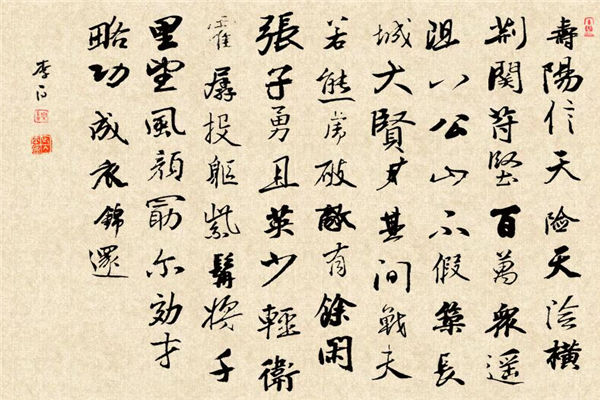 壽陽信天險天險橫
荊關苻堅百萬眾遥
阻八公山不假築長
城大賢在其間戰夫
若熊虎破敵有餘閑
張子勇且英少輕衛
霍孱投軀紫髯將千
里望風顏勗尓効才
略功成衣錦還
李白